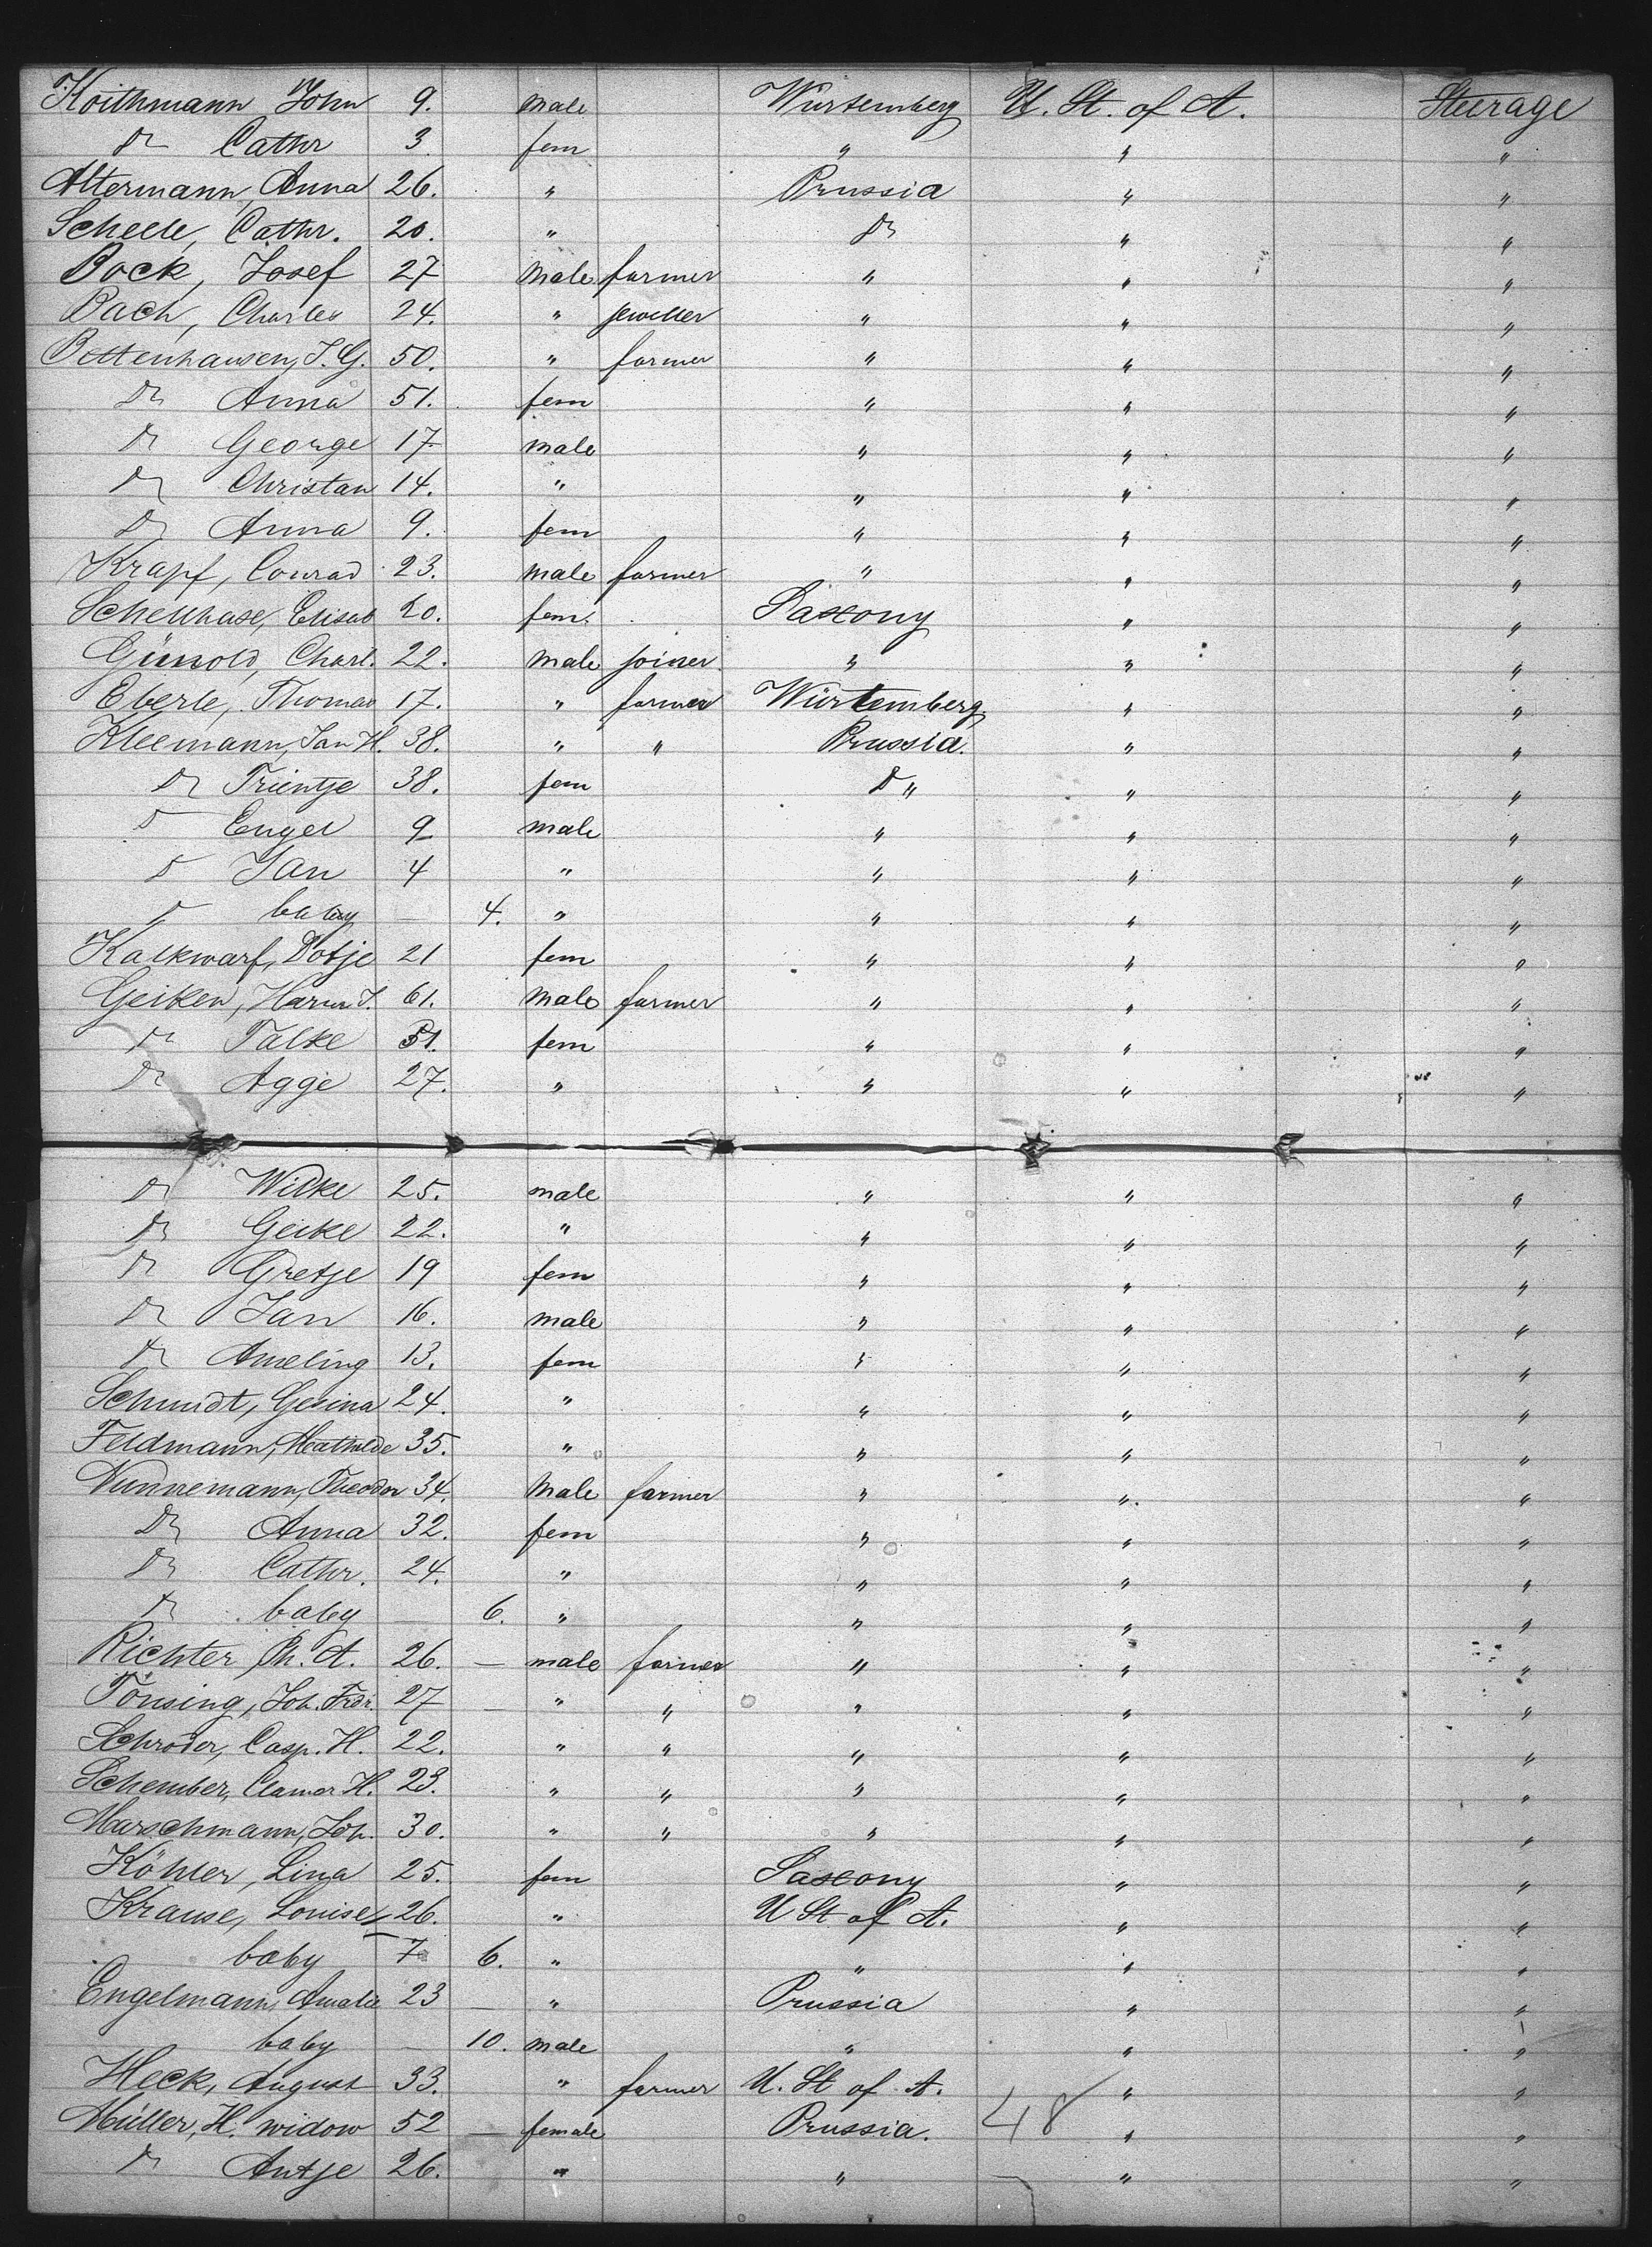 Koithmann John 9. male Wurtemberg U. St. of A. Steerage
do Cathr 3. fem " " "
Altermann, Anna 26. " Prussia " "
Scheele, Cathr. 20. " do " "
Bock, Josef 27 male farmer " " "
Bach, Charles 24. " jeweller " " "
Bettenhausen, J. G. 50. " farmer " " "
do Anna 51. fem " " "
do George 17 male " " "
do Christan 14. " " " "
do Anna 9. fem " " "
Krapf, Conrad 23. male farmer " " "
Schellhase, Elisab 20. fem. Saxony " "
Günold, Charl. 22. male joiner " " "
Eberle, Thomas 17. " farmer Würtemberg. " "
Kleemann, Jan H. 38. " " Prussia. " "
do Trientje 38. fem d " " "
d Engel 9 male " " "
d Jan 4 " " " "
d baby — 4. " " " "
Kalkwarf, Dotje 21 fem " " "
Geiken, Harm J. 61. male farmer " " "
do Talke 51. fem " " "
do Agge 27. " " " "
do Wilke 25. male " " "
do Geike 22. " " " "
do Gretje 19 fem " " "
do Jan 16. male " " "
do Ameling 13. fem " " "
Schmidt, Gesina 24. " " " "
Feldmann, Mathilde 35. " " " "
Nunnemann, Theodor 34. male farmer " " "
do Anna 32. fem " " "
do Cathr. 24. " " " "
do baby — 6. " " " "
Richter, Ph. A. 26. — male farmer " " "
Tönsing, Joh. Frdr. 27 — " " " " "
Schroder, Casp. H. 22. " " " " "
Schember, Clamor H. 23. " " " " "
Marschmann, Joh. 30. " " " " "
Köhler, Lina 25. fem Saxony " "
Krause, Louise 26. " U St of A. " "
baby 7 6. " " " "
Engelmann, Amalie 23 — " Prussia " "
baby — 10. male " " "
Heck, August 33. " farmer U. St of A. " "
Müller, H. widow 52 — female Prussia. 48 " "
do Antje 26. " " " "